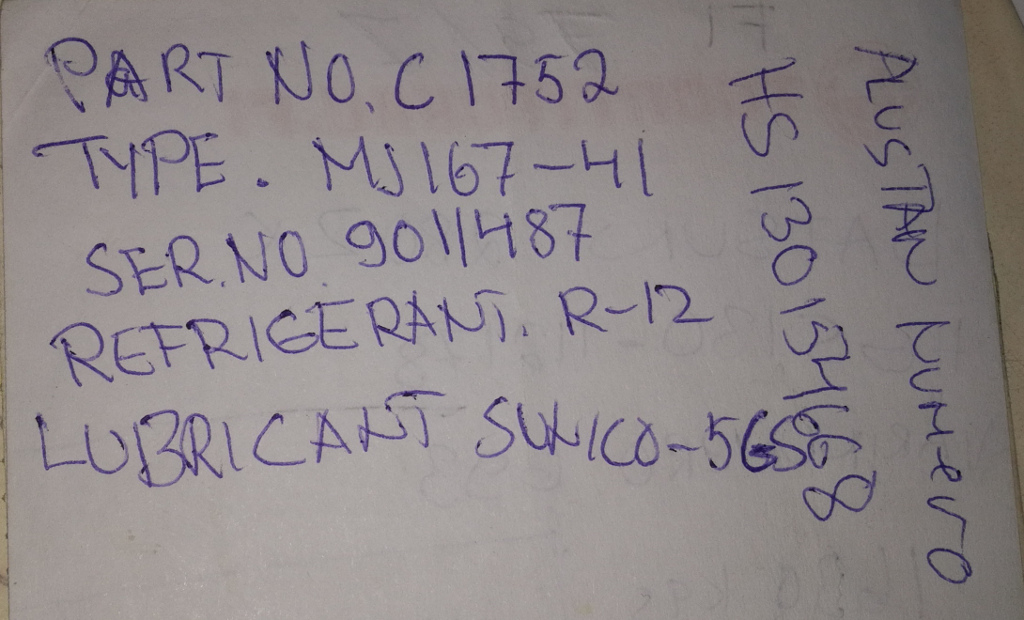 PART NO. C 1752
TYPE. MJ167-41
SER.NO. 9011487
REFRIGERANT. R-12
LUBRICANT SUNICO-5GS
HS 130154668
ALUSTAN NUMERO